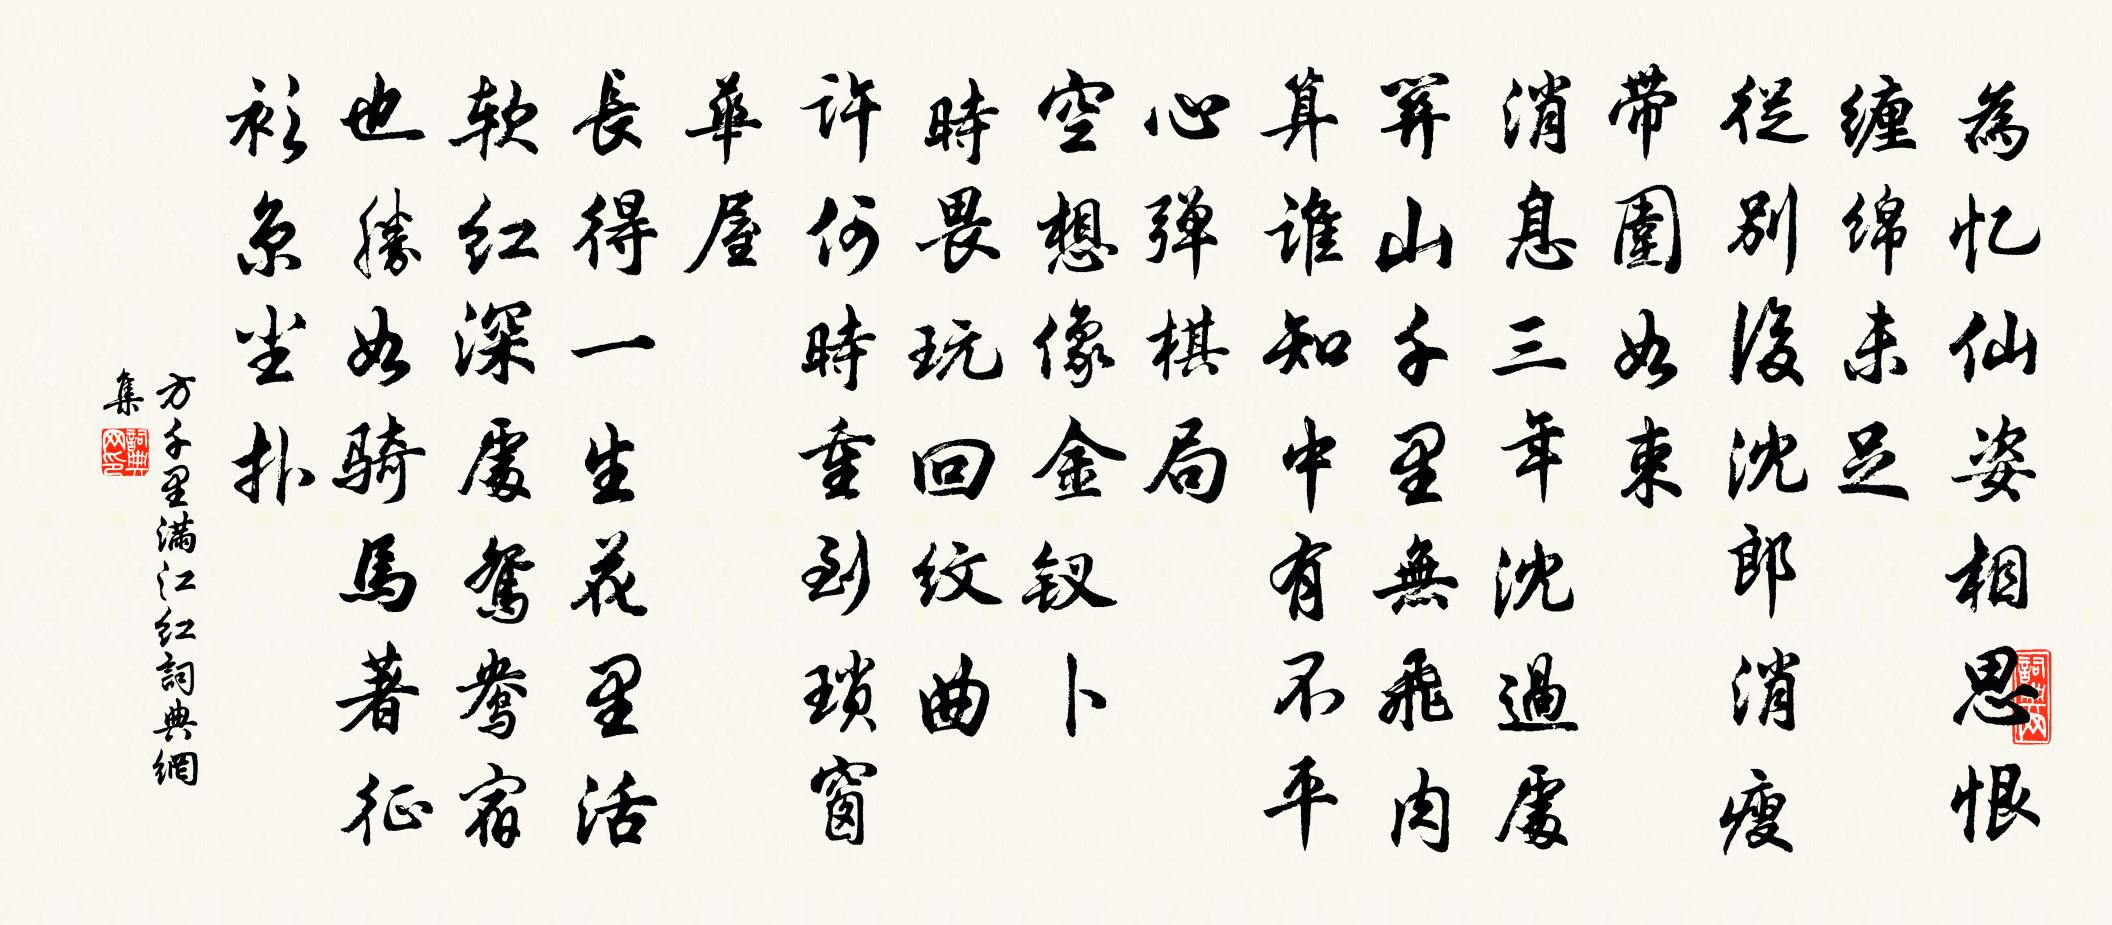 為忆仙姿相思恨
缠绵未足
從别後沈郎消瘦
带圍如束
消息三年沈過處
關山千里無飛肉
算谁知中有不平
心弹棋局
空想像金钗卜
時畏玩回纹曲
许何時重到琐窗
華屋
長得一生花里活
软红深處鸳鸯宿
也勝如骑馬著征
衫京尘扑
方千里满江红詞典網
集
詞典网印
詞典网